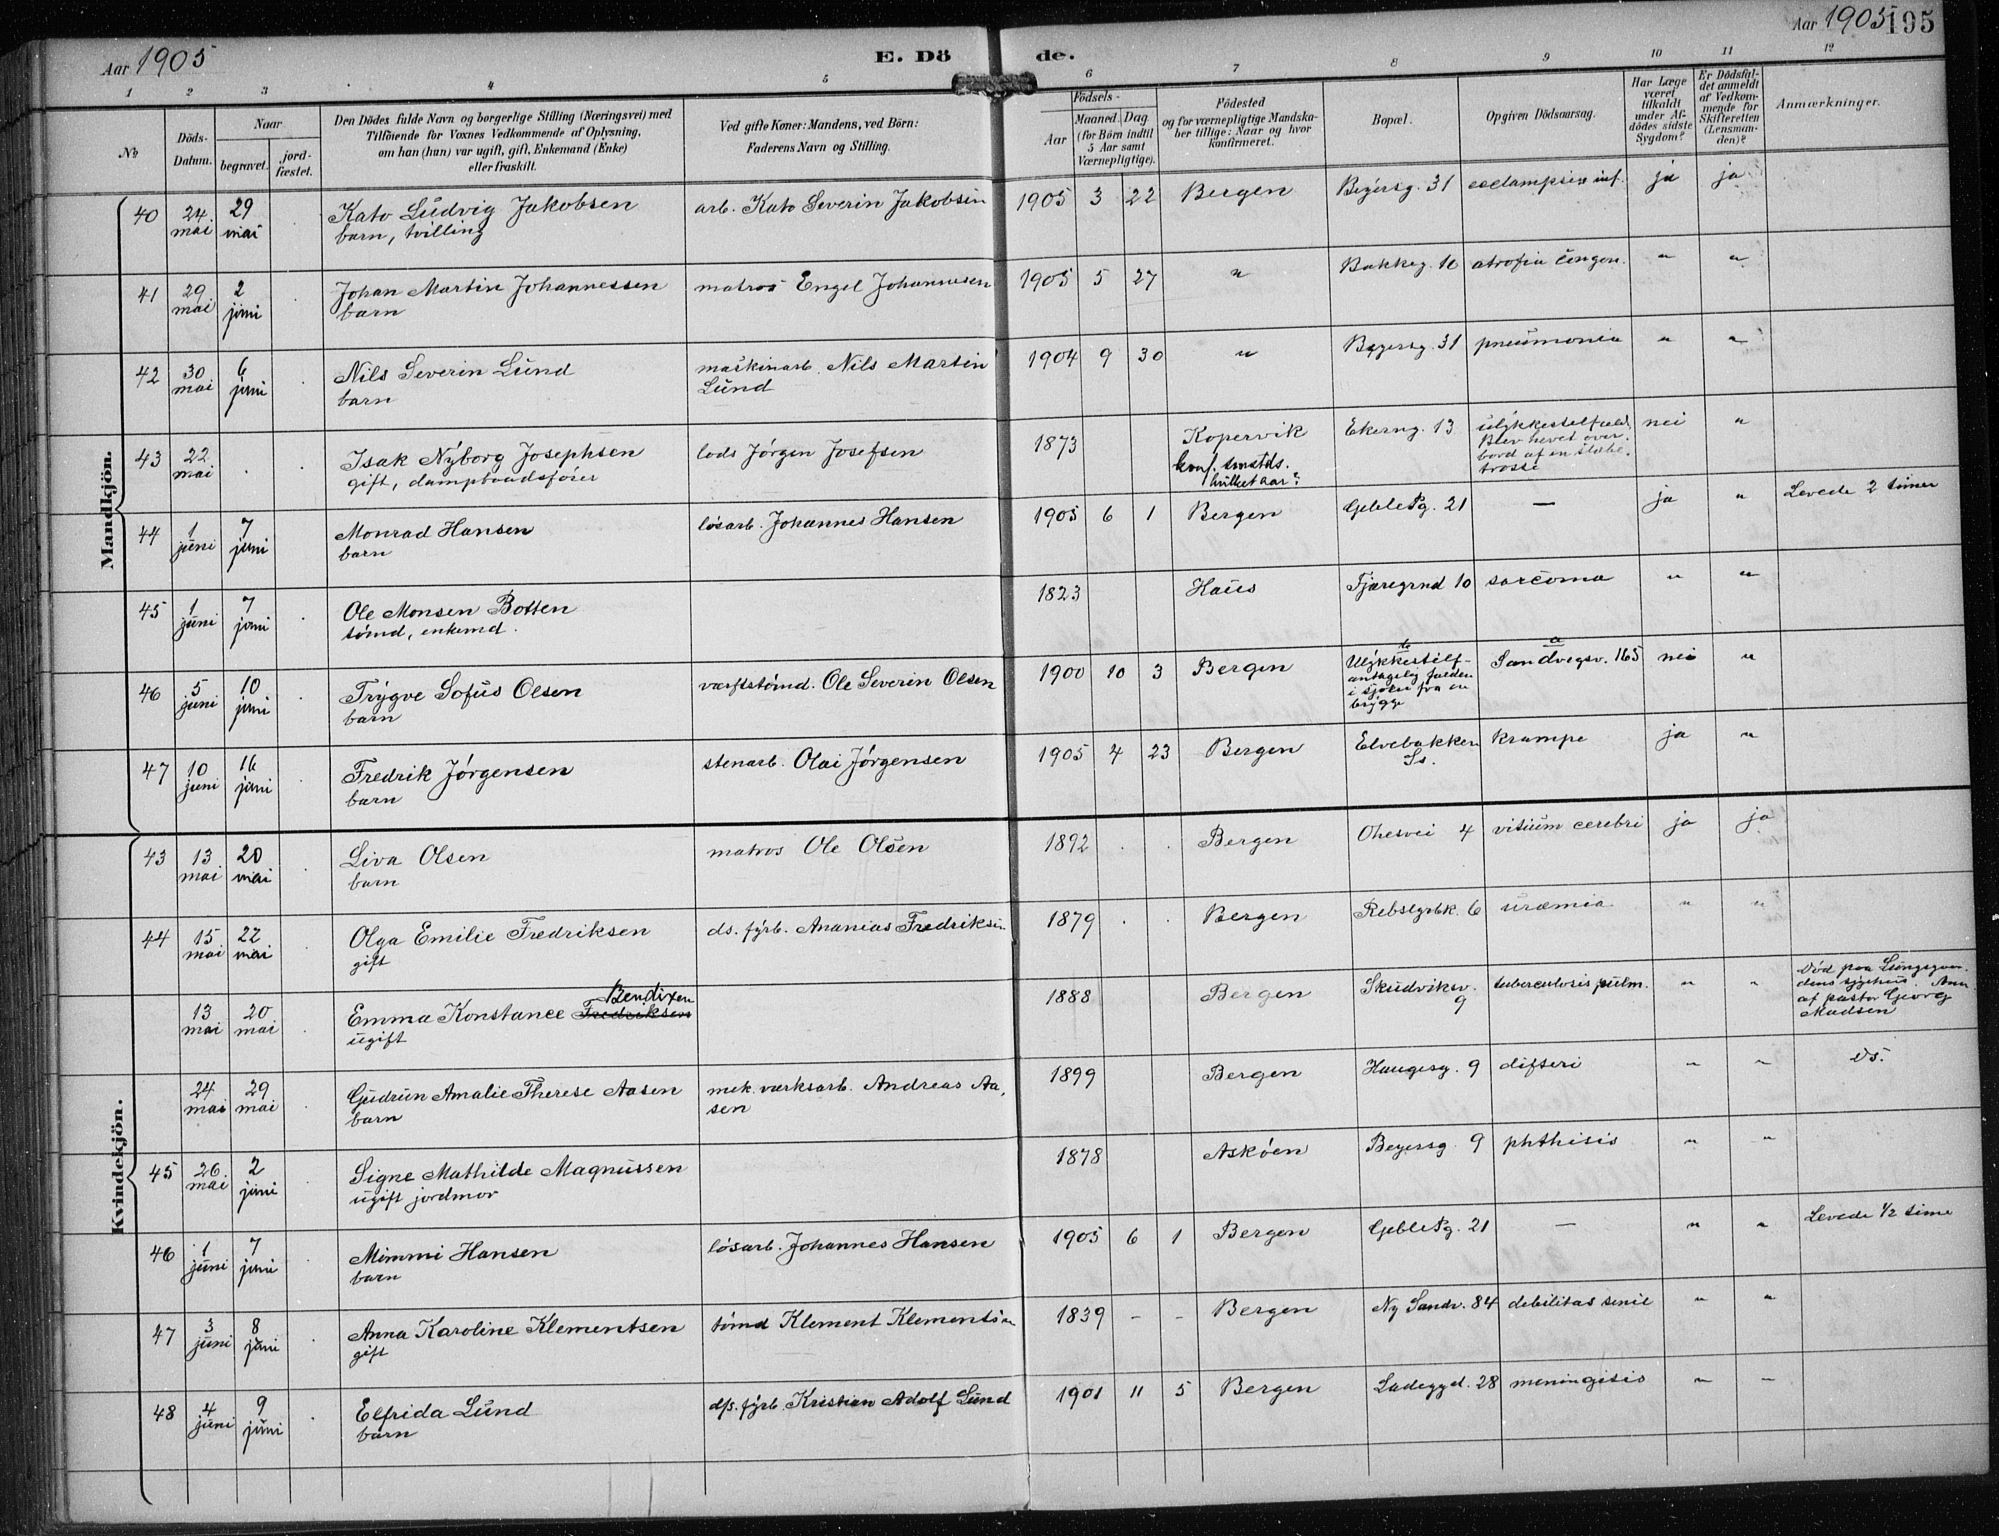 Aar 1905
E. Dö de.
Aar 1905 195
1 2 3 4 5 6 7 8 9 10 11 12
No
Döds-Datum.
Naar
begravet.
jord-fæstet.
Den Dödes fulde Navn og borgerlige Stilling (Næringsvei) med
Tilföiende for Voxnes Vedkommende af Oplysning,
om han (hun) var ugift, gift, Enkemand (Enke)
eller fraskilt.
Ved gifte Koner: Mandens, ved Börn:
Faderens Navn og Stilling.
Födsels-
Aar
Maaned Dag
(for Börn indtil
5 Aar samt
Værnepligtige).
Födested
og for værnepligtige Mandska-
ber tillige: Naar og hvor
konfirmeret.
Bopæl.
Opgiven Dödsaarsag.
Har Læge
været
tilkaldt
under Af-
dödes sidste
Sygdom?
Er Dödsfal-
det anmeldt
af Vedkom-
mende for
Skifteretten
(Lensman-
den)?
Anmærkninger.
Mandkjön.
40 24 mai 29 mai Kato Ludvig Jakobsen arb. Kato Severin Jakobsen 1905 3 22 Bergen Beyersg. 31 eclampsia inf. ja ja
barn, tvilling
41 29 mai 2 juni Johan Martin Johannessen matros Engel Johannesen 1905 5 27 " Bakkeg. 16 atrofia congen. " "
barn
42 30 mai 6 juni Nils Severin Lund maskinarb. Nils Martin 1904 9 30 " Beyersg. 31 pneumonia " "
barn Lund
43 22 mai Isak Nyborg Josephsen lods Jørgen Josefsen 1873 Kopervik Ekerng. 13 ulykkestilfæld. nei "
gift, dampbaadsfører konf. smstds. Blev hevet over
hvilket aar? bord af en slæbe-
trosse
44 1 juni 7 juni Monrad Hansen løsarb. Johannes Hansen 1905 6 1 Bergen Geblepg. 21 — ja " Levede 2 timer
barn
45 1 juni 7 juni Ole Monsen Botten 1823 Haus Fjæregrnd 10 sarcoma " "
tømd, enkemd.
46 5 juni 10 juni Trygve Sofus Olsen værftstømd. Ole Severin Olsen 1900 10 3 Bergen b Ulykkestilf- a Sandvigsv. 165 nei "
barn antagelig falden
i sjøen fra en
brygge
47 10 juni 16 juni Fredrik Jørgensen stenarb. Olai Jørgensen 1905 4 23 Bergen Elvebakken krampe ja "
barn Ss.
Kvindekjön.
43 13 mai 20 mai Liva Olsen matros Ole Olsen 1892 . . Bergen Ohesvei 4 vitium cerebri ja ja
barn
44 15 mai 22 mai Olga Emilie Fredriksen ds. fyrb. Ananias Fredriksen 1879 . . Bergen Rebslgrbk. 6 uræmia " "
gift
13 mai 20 mai Emma Konstance Fredriksen Bendixen 1888 Bergen Skudviksv. 9 tuberculosis pulm. " " Død paa Lungegaar-
ugift dens sygehus. Anm.
af pastor Georg
Madsen
24 mai 29 mai Gudrun Amalie Therese Aasen mek. værksarb. Andreas Aa- 1899 Bergen Haugesg. 9 difteri " " Ds.
barn sen
45 26 mai 2 juni Signe Mathilde Magnussen 1878 Askøen Beyersg. 9 phthisis " "
ugift jordmor
46 1 juni 7 juni Mimmi Hansen løsarb. Johannes Hansen 1905 6 1 Bergen Geblepg. 21 — " " Levede 1/2 time
barn
47 3 juni 8 juni Anna Karoline Klementsen tømd Klement Klementsen 1839 - - Bergen Ny Sandv. 84 debilitas senil " "
gift
48 4 juni 9 juni Elfrida Lund ds. fyrb. Kristian Adolf Lund 1901 11 5 Bergen Ladegyd. 28 meningitis " "
barn